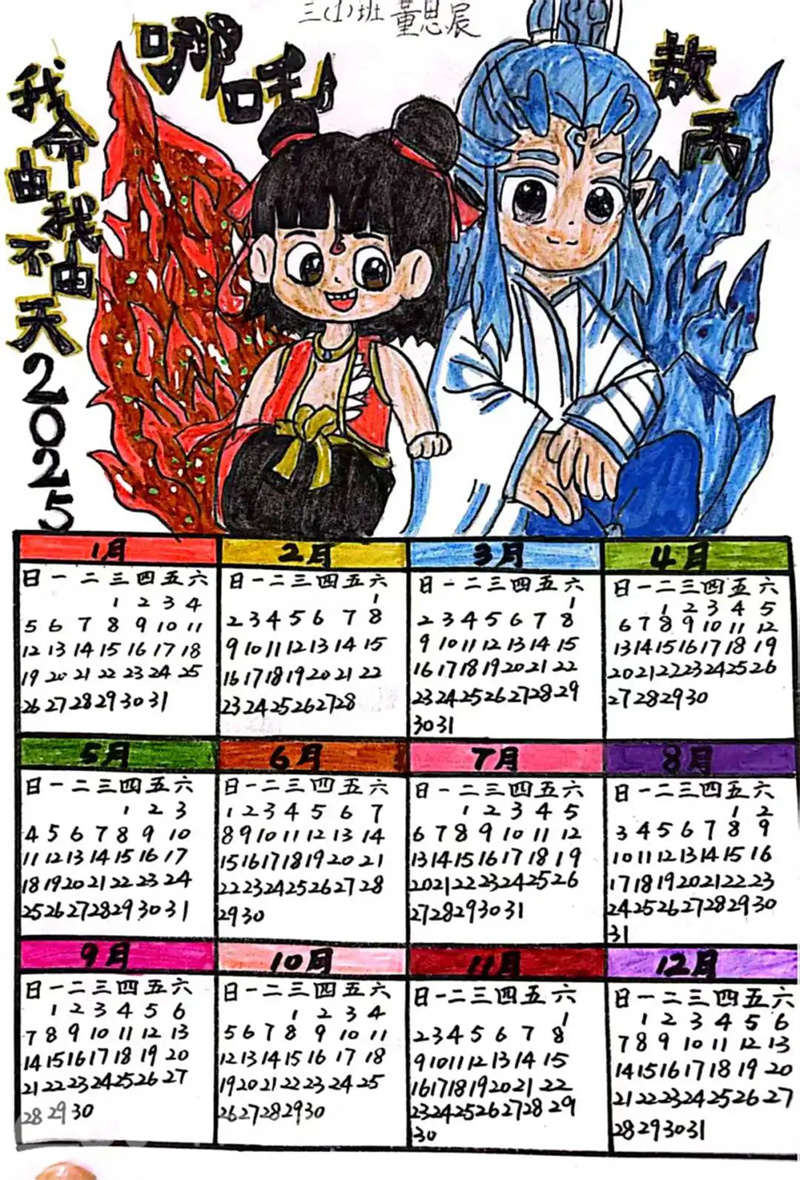 三(1)班 董思辰
哪吒
敖丙
我命由我不由天
2025
1月
日 一 二 三 四 五 六
1 2 3 4
5 6 7 8 9 10 11
12 13 14 15 16 17 18
19 20 21 22 23 24 25
26 27 28 29 30 31
2月
日 一 二 三 四 五 六
1
2 3 4 5 6 7 8
9 10 11 12 13 14 15
16 17 18 19 20 21 22
23 24 25 26 27 28
3月
日 一 二 三 四 五 六
1
2 3 4 5 6 7 8
9 10 11 12 13 14 15
16 17 18 19 20 21 22
23 24 25 26 27 28 29
30 31
4月
日 一 二 三 四 五 六
1 2 3 4 5
6 7 8 9 10 11 12
13 14 15 16 17 18 19
20 21 22 23 24 25 26
27 28 29 30
5月
日 一 二 三 四 五 六
1 2 3
4 5 6 7 8 9 10
11 12 13 14 15 16 17
18 19 20 21 22 23 24
25 26 27 28 29 30 31
6月
日 一 二 三 四 五 六
1 2 3 4 5 6 7
8 9 10 11 12 13 14
15 16 17 18 19 20 21
22 23 24 25 26 27 28
29 30
7月
日 一 二 三 四 五 六
1 2 3 4 5
6 7 8 9 10 11 12
13 14 15 16 17 18 19
20 21 22 23 24 25 26
27 28 29 30 31
8月
日 一 二 三 四 五 六
1 2
3 4 5 6 7 8 9
10 11 12 13 14 15 16
17 18 19 20 21 22 23
24 25 26 27 28 29 30
31
9月
日 一 二 三 四 五 六
1 2 3 4 5 6
7 8 9 10 11 12 13
14 15 16 17 18 19 20
21 22 23 24 25 26 27
28 29 30
10月
日 一 二 三 四 五 六
1 2 3 4
5 6 7 8 9 10 11
12 13 14 15 16 17 18
19 20 21 22 23 24 25
26 27 28 29 30
11月
日 一 二 三 四 五 六
1
2 3 4 5 6 7 8
9 10 11 12 13 14 15
16 17 18 19 20 21 22
23 24 25 26 27 28 29
30
12月
日 一 二 三 四 五 六
1 2 3 4 5 6
7 8 9 10 11 12 13
14 15 16 17 18 19 20
21 22 23 24 25 26 27
28 29 30 31